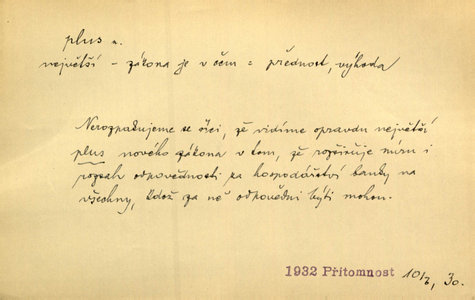 plus n.
největší – zákona je v čem = přednost, výhoda
Nerozpakujeme se říci, že vidíme opravdu největší
plus nového zákona v tom, že rozšiřuje míru i
rozsah odpovědnosti za hospodářství banky na
všechny, kdož za ně odpovědni býti mohou.
1932 Přítomnost 10/2, 30.